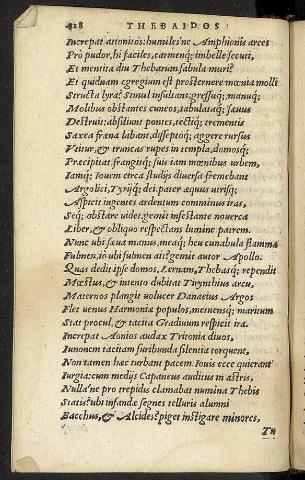 428 THEBAIDOS
Increpat attonitos: humiles'ne Amphionis arces
Prò pudor, hi faciles, carmenq; imbelle secuti,
Et mentita diu Thebarum fabula muri?
Et quidnam egregium est prosternere mœnia molli
Structa lyra? Simul insultans: gressuq; manuq;
Molibus obstantes cuneos, tabulataq; sæuus
Destruit: absiliunt pontes, tectiq; trementis
Saxea fræna labant, disseptoq; aggere rursus
Vtitur, & truncas rupes in templa, domosq;
Præcipitat, frangitq; suis iam mœnibus urbem,
Iamq; Iouem circa studijs diuersa fremebant
Argolici, Tyrijq; dei. pater æquus utrisq;
Aspicit ingentes ardentum comminus iras,
Seq; obstare uidet. gemit inspectante nouerca
Liber, & obliquo respectans lumine patrem.
Nunc ubi sæua manus, meaq; heu cunabula flamma?
Fulmen, io ubi fulmen ait? gemit autor Apollo.
Quas dedit ipse domos, Lernam, Thebasq; rependit
Mœstus, & intento dubitat Tirynthius arcu,
Maternos plangit uolucer Danaeius Argos
Flet uenus Harmoniæ populos, metuensq; maritum
Stat procul, & tacita Gradiuum respicit ira.
Increpat Aonios audax Tritonia diuos,
Iunonem tacitam furibunda silentia torquent,
Non tamen hæc turbant pacem Iouis: ecce quierant
Iurgia: cum medijs Capaneus auditus in astris,
Nulla'ne pro trepidis clamabat numina Thebis
Statis? ubi infandæ segnes telluris alumni
Bacchus, & Alcides? piget instigare minores,
Tu